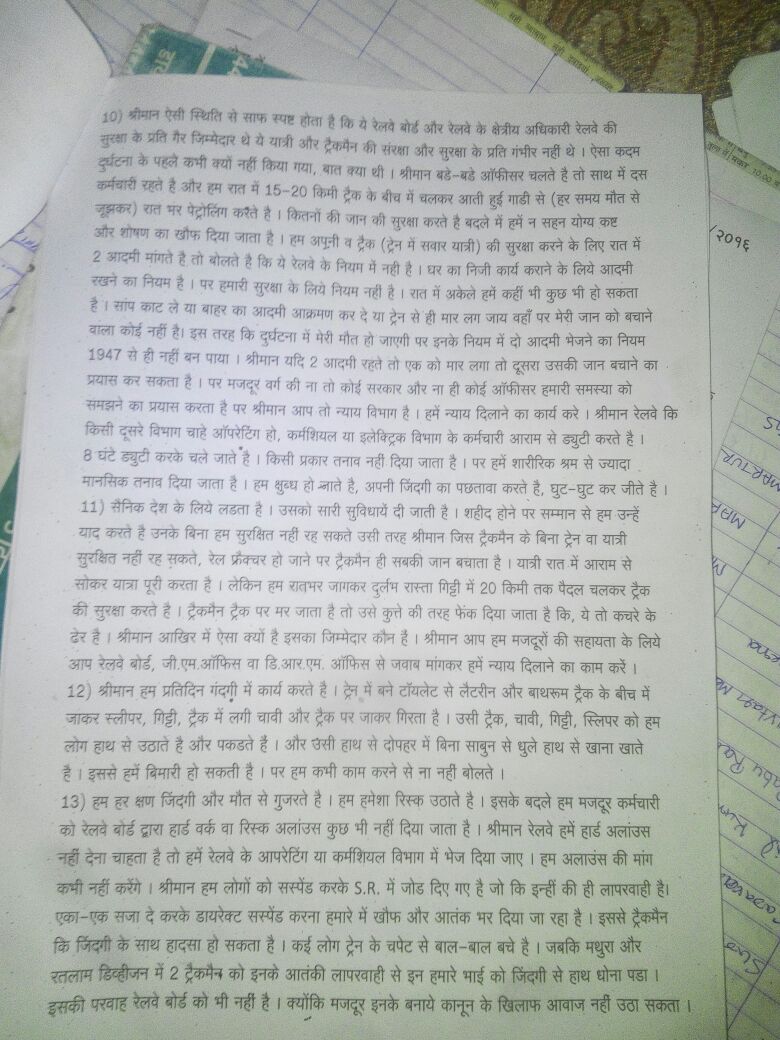 10) श्रीमान ऐसी स्थिति से साफ स्पष्ट होता है कि ये रेलवे बोर्ड और रेलवे के क्षेत्रीय अधिकारी रेलवे की
सुरक्षा के प्रति गैर जिम्मेदार थे ये यात्री और ट्रैकमैन की संरक्षा और सुरक्षा के प्रति गंभीर नहीं थे । ऐसा कदम
दुर्घटना के पहले कभी क्यों नहीं किया गया, बात क्या थी । श्रीमान बडे-बडे ऑफीसर चलते है तो साथ में दस
कर्मचारी रहते है और हम रात में 15-20 किमी ट्रैक के बीच में चलकर आती हुई गाडी से (हर समय मौत से
जूझकर) रात भर पेट्रोलिंग करैते है । कितनों की जान की सुरक्षा करते है बदले में हमें न सहन योग्य कष्ट
और शोषण का खौफ दिया जाता है । हम अपनी व ट्रैक (ट्रेन में सवार यात्री) की सुरक्षा करने के लिए रात में
2 आदमी मांगते है तो बोलते है कि ये रेलवे के नियम में नही है । घर का निजी कार्य कराने के लिये आदमी
रखने का नियम है । पर हमारी सुरक्षा के लिये नियम नहीं है । रात में अकेले हमें कहीं भी कुछ भी हो सकता
है । सांप काट ले या बाहर का आदमी आक्रमण कर दे या ट्रेन से ही मार लग जाय वहाँ पर मेरी जान को बचाने
वाला कोई नहीं है। इस तरह कि दुर्घटना में मेरी मौत हो जाएगी पर इनके नियम में दो आदमी भेजने का नियम
1947 से ही नहीं बन पाया । श्रीमान यदि 2 आदमी रहते तो एक को मार लगा तो दूसरा उसकी जान बचाने का
प्रयास कर सकता है । पर मजदूर वर्ग की ना तो कोई सरकार और ना ही कोई ऑफीसर हमारी समस्या को
समझने का प्रयास करता है पर श्रीमान आप तो न्याय विभाग है । हमें न्याय दिलाने का कार्य करे । श्रीमान रेलवे कि
किसी दूसरे विभाग चाहे ऑपरेटिंग हो, कर्मशियल या इलेक्ट्रिक विभाग के कर्मचारी आराम से ड्युटी करते है ।
8 घंटे ड्युटी करके चले जाते है । किसी प्रकार तनाव नहीं दिया जाता है । पर हमें शारीरिक श्रम से ज्यादा
मानसिक तनाव दिया जाता है । हम क्षुब्ध हो जाते है, अपनी जिंदगी का पछतावा करते है, घुट-घुट कर जीते है ।
11) सैनिक देश के लिये लडता है । उसको सारी सुविधायें दी जाती है । शहीद होने पर सम्मान से हम उन्हें
याद करते है उनके बिना हम सुरक्षित नहीं रह सकते उसी तरह श्रीमान जिस ट्रैकमैन के बिना ट्रेन वा यात्री
सुरक्षित नहीं रह सकते, रेल फ्रैक्चर हो जाने पर ट्रैकमैन ही सबकी जान बचाता है । यात्री रात में आराम से
सोकर यात्रा पूरी करता है । लेकिन हम रातभर जागकर दुर्लभ रास्ता गिट्टी में 20 किमी तक पैदल चलकर ट्रैक
की सुरक्षा करते है । ट्रैकमैन ट्रैक पर मर जाता है तो उसे कुत्ते की तरह फेंक दिया जाता है कि, ये तो कचरे के
ढेर है । श्रीमान आखिर में ऐसा क्यों है इसका जिम्मेदार कौन है । श्रीमान आप हम मजदूरों की सहायता के लिये
आप रेलवे बोर्ड, जी.एम.ऑफिस वा डि.आर.एम. ऑफिस से जवाब मांगकर हमें न्याय दिलाने का काम करें ।
12) श्रीमान हम प्रतिदिन गंदगी में कार्य करते है । ट्रेन में बने टॉयलेट से लैटरीन और बाथरूम ट्रैक के बीच में
जाकर स्लीपर, गिट्टी, ट्रैक में लगी चावी और ट्रैक पर जाकर गिरता है । उसी ट्रैक, चावी, गिट्टी, स्लिपर को हम
लोग हाथ से उठाते है और पकडते हैं । और उसी हाथ से दोपहर में बिना साबुन से धुले हाथ से खाना खाते
है । इससे हमें बिमारी हो सकती है । पर हम कभी काम करने से ना नहीं बोलते ।
13) हम हर क्षण जिंदगी और मौत से गुजरते है । हम हमेशा रिस्क उठाते है । इसके बदले हम मजदूर कर्मचारी
को रेलवे बोर्ड द्वारा हार्ड वर्क वा रिस्क अलांउस कुछ भी नहीं दिया जाता है । श्रीमान रेलवे हमें हार्ड अलांउस
नहीं देना चाहता है तो हमें रेलवे के आपरेटिंग या कर्मशियल विभाग में भेज दिया जाए । हम अलाउंस की मांग
कभी नहीं करेंगे । श्रीमान हम लोगों को सस्पेंड करके S.R. में जोड दिए गए है जो कि इन्हीं की ही लापरवाही है।
एका-एक सजा दे करके डायरेक्ट सस्पेंड करना हमारे में खौफ और आतंक भर दिया जा रहा है । इससे ट्रैकमैन
कि जिंदगी के साथ हादसा हो सकता है । कई लोग ट्रेन के चपेट से बाल-बाल बचे है । जबकि मथुरा और
रतलाम डिव्हीजन में 2 ट्रैकमैन को इनके आतंकी लापरवाही से इन हमारे भाई को जिंदगी से हाथ धोना पडा ।
इसकी परवाह रेलवे बोर्ड को भी नहीं है । क्योंकि मजदूर इनके बनाये कानून के खिलाफ आवाज नहीं उठा सकता ।
/२०१६